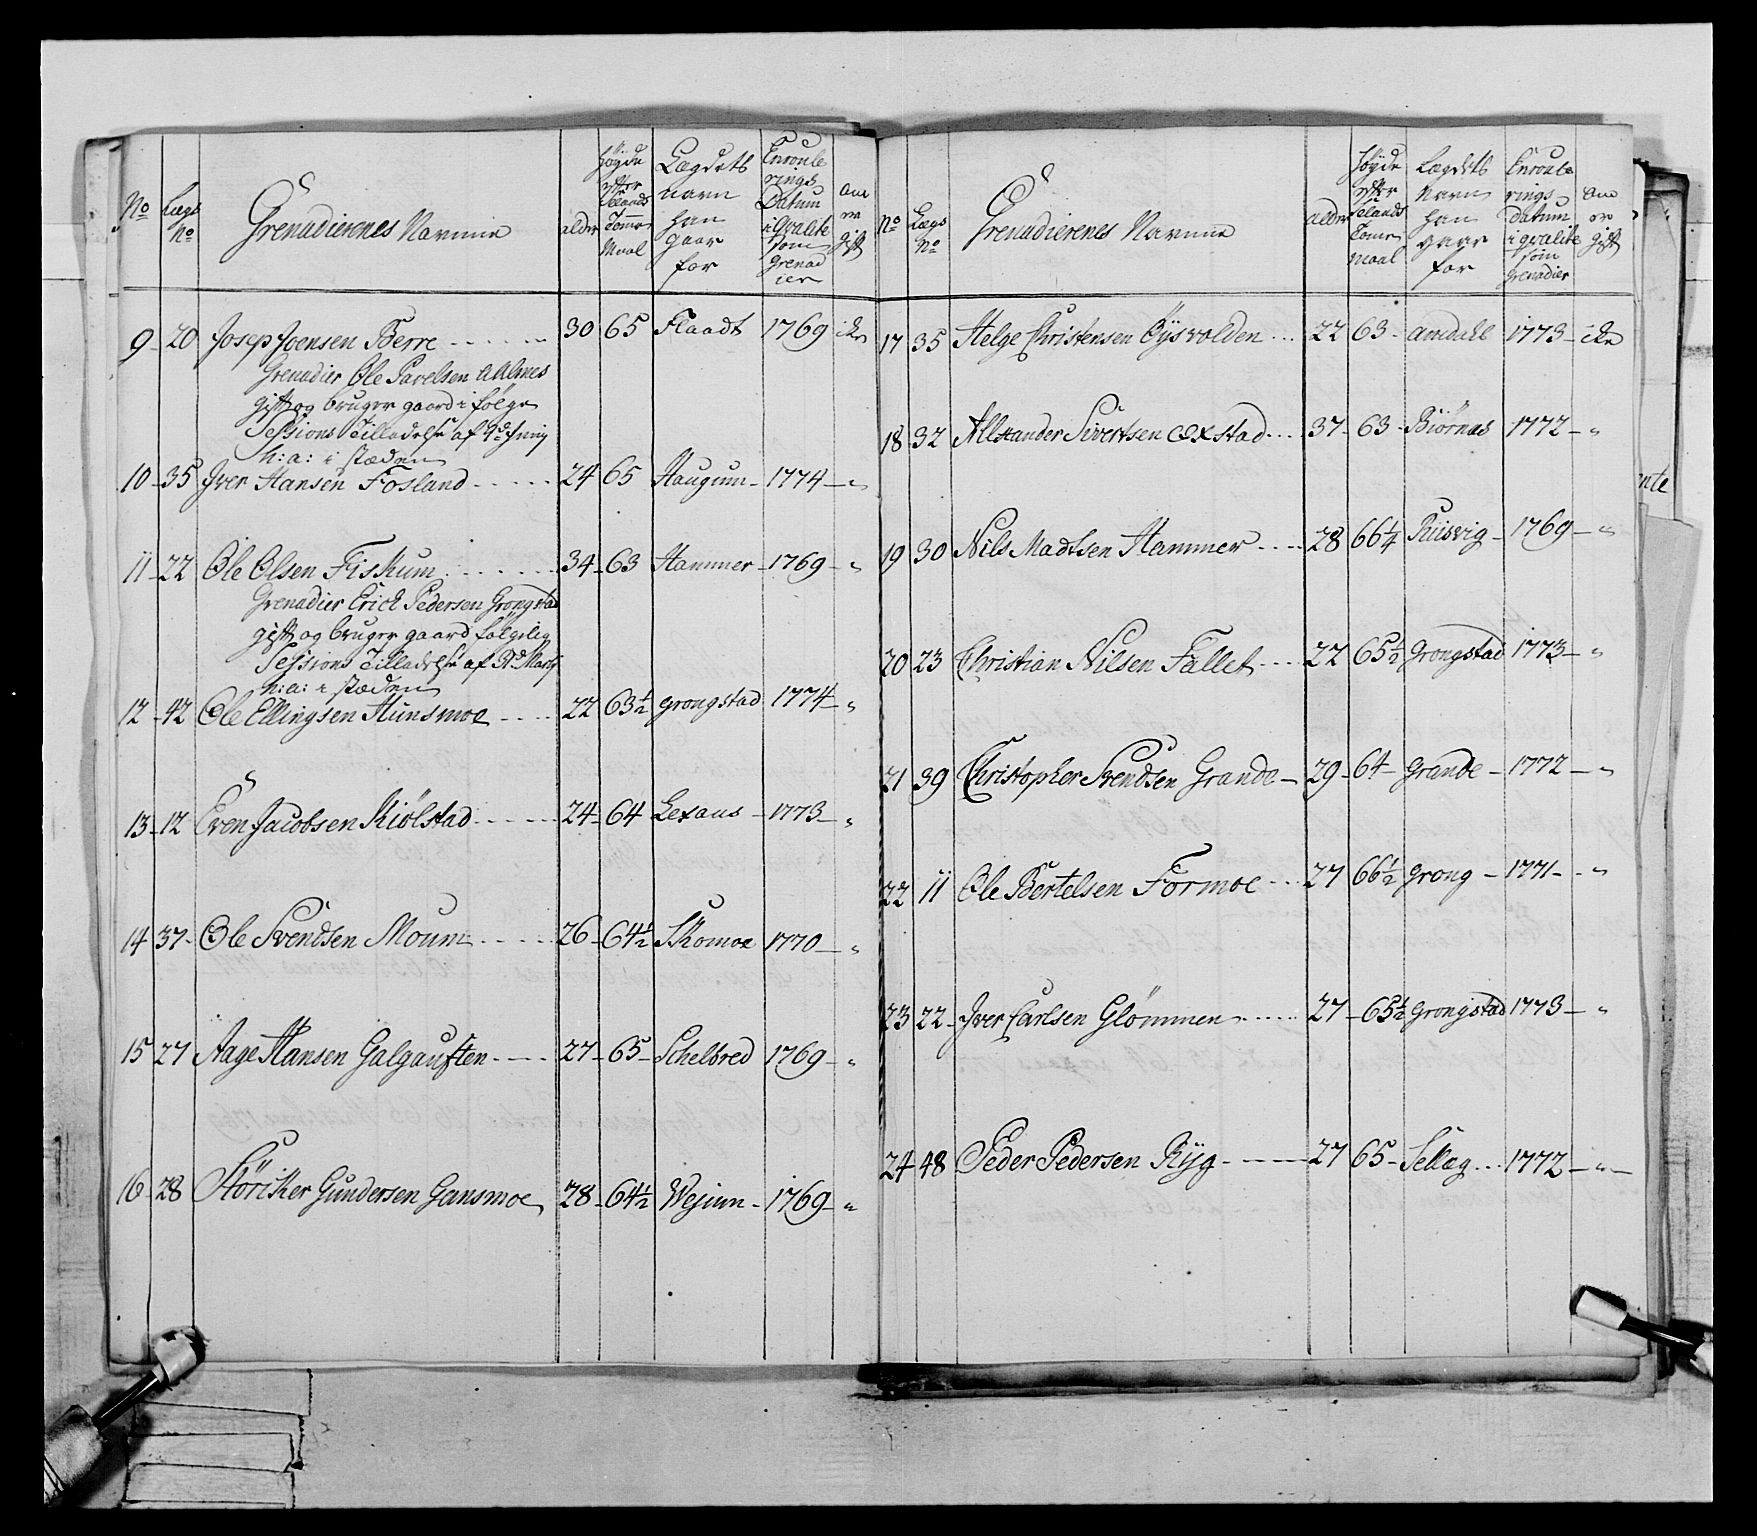 No
Lægs No
Grenadierenes Navnne
alder
Höyde efter Siælands Tomme Maal
Lægdets Navn han gaar for
Enroule rings Datum i qvalite som grenad ier
Om er gift
9 - 20 Josep Joensen Berre - - - - - 30 65 Flaadt 1769 icke
Grenadier Ole Pavelsen Aalmes
gift og bruger gaard i følge
Sessions Tilladelse af
h: a: i stæden
10 - 35 Jver Hansen Fosland - - - - - 24 65 Haugum - 1774 - "
11 - 22 Ole Olsen Fiskum - - - - - 34 - 63 Hammer - 1769 - "
Grenadier Erick Pedersen Grongstad
gift og bruger gaard følgelig
Sessions Tilladelse af Martj
h: a: i stæden
12 - 42 Ole Ellingsen Hunsmoe - - - - 22 63½ grongstad 1774 - "
13 - 12 Even Jacobsen Kiölstad - - - - - 24 - 64 Lexaus - 1773 - "
14 37 - Ole Svendsen Moum - - - - - 26 - 64½ Skomoe 1770 - "
15 27 Aage Hansen Galgauften - - - - 27 - 65 - Schelbred 1769 - "
16 - 28 Störcker Gundersen Gansmoe 28 - 64½ Wejum - 1769 - "
No
Lægs No
Grenadierenes Navnne
alder
Höyde efter Siælands Tomme maal
Lægdets Navn han gaar for
Enroule rings datum i qvalite som grenadier
Om er gift
17 35 Helge Christensen Öysvolden - - - 22 63 - amdahl 1773 - icke
18 32 Allexander Sivertsen Oxstad - - - 37 - 63 - Biörnes 1772 - "
19 30 Nils Madtsen Hammer - - - - 28 66¼ Riisvig - 1769 - "
20 23 Christian Nilsen Fallet - - - - 22 65½ grongstad 1773 - "
21 39 Christopher Svendsen Grande - 29 - 64 - grande - 1772 - "
22 11 Ole Bertelsen Formoe - - - 27 66½ grong - 1771 - "
23 22 - Jver Carlsen Glömmen - - - - - 27 - 65½ grongstad 1773 - "
24 48 Peder Pedersen Ryg - - - - 27 65 - Sellæg - - 1772 - " -